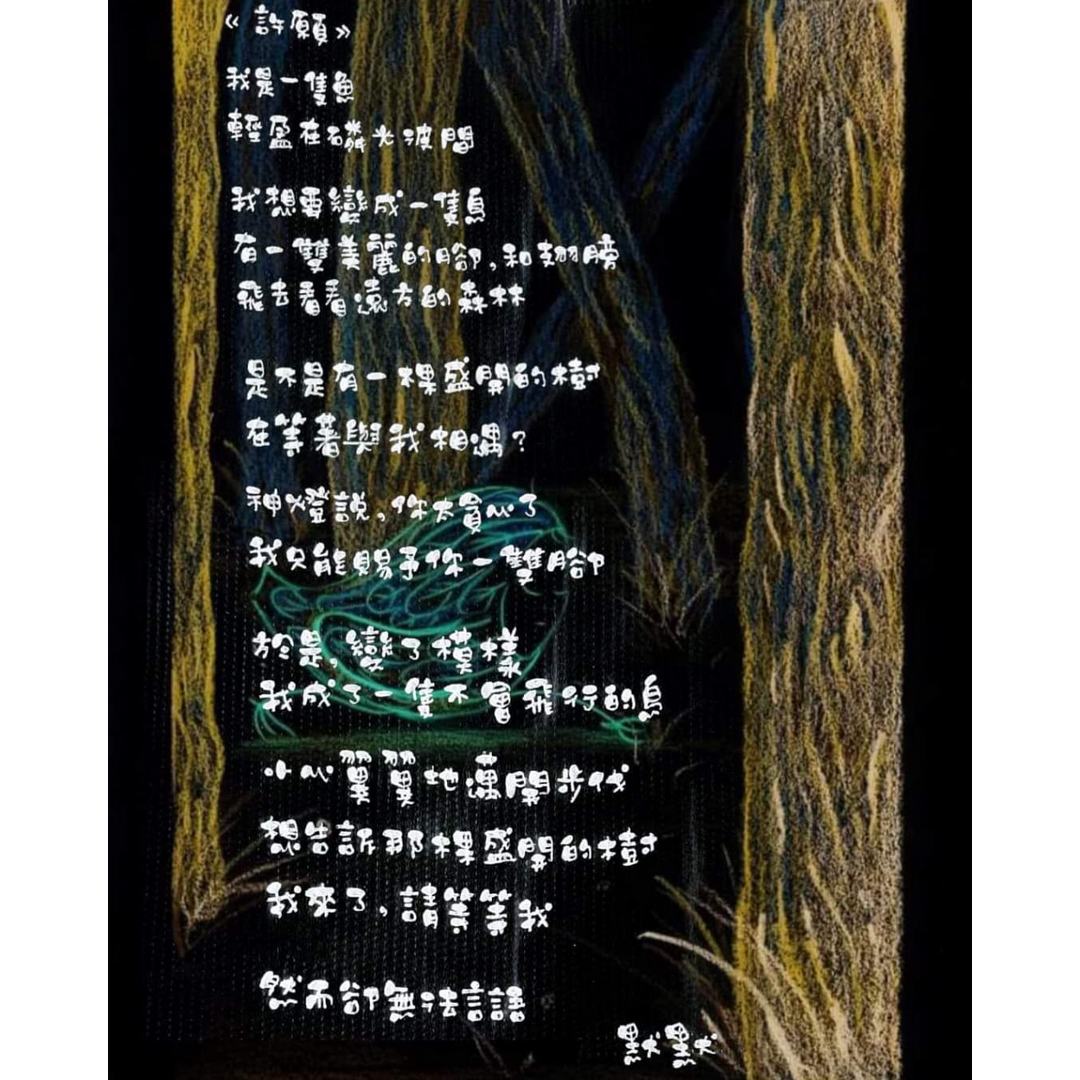 《許願》
我是一隻魚
輕盈在磷光波間
我想要變成一隻鳥
有一雙美麗的腳,和翅膀
飛去看看遠方的森林
是不是有一棵盛開的樹
在等著與我相遇?
神燈說,你太貪心了
我只能賜予你一雙腳
於是,變了模樣
我成了一隻不會飛行的鳥
小心翼翼地邁開步伐
想告訴那棵盛開的樹
我來了,請等等我
然而卻無法言語
默默